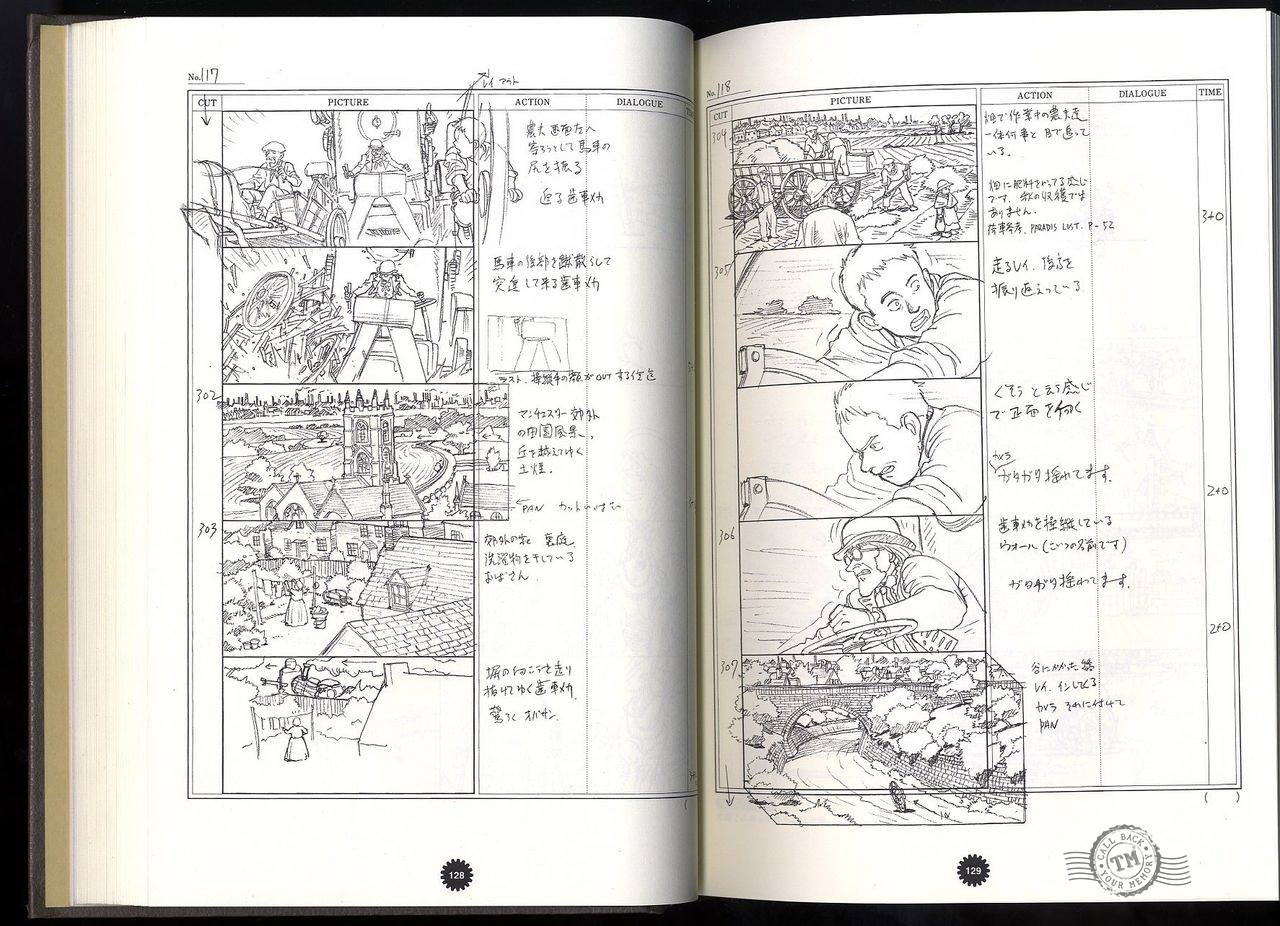 No. 117
レイ アウト
CUT PICTURE ACTION DIALOGUE
農夫画面左へ
寄ろうとして馬車の
尻を振る
迫る歯車メカ
馬車の後部を蹴散らして
突進して来る歯車メカ
ラスト、操縦手の顔が OUT する位迄
302
マンチェスター郊外
の田園風景、
丘を越えてゆく
土煙。
PAN カットいっぱい
303
郊外の家 裏庭
洗濯物を干している
おばさん
塀の向こうを走り
抜けてゆく歯車メカ
驚ろく オバサン
128
No. 118
CUT PICTURE ACTION DIALOGUE TIME
304
畑で作業中の農夫達
一体何事と目で追って
いる。
畑に肥料をやってる感じ
です。秋の収穫では
ありません。
荷車参考、PARADIS LOST. P-52
3+0
305
走るレイ、後ろを
振り返えっている
くそうと云う感じ
で正面を向く
カメラ
ガタガタ揺れてます。
2+0
306
歯車メカを操縦している
ウォール(こいつの名前です)
ガタガタ揺れてます。
2+0
307
谷にかかった橋
レイ、インしてくる
カメラ それに付けて
PAN
IN
( )
129
CALL BACK
TM
YOUR MEMORY